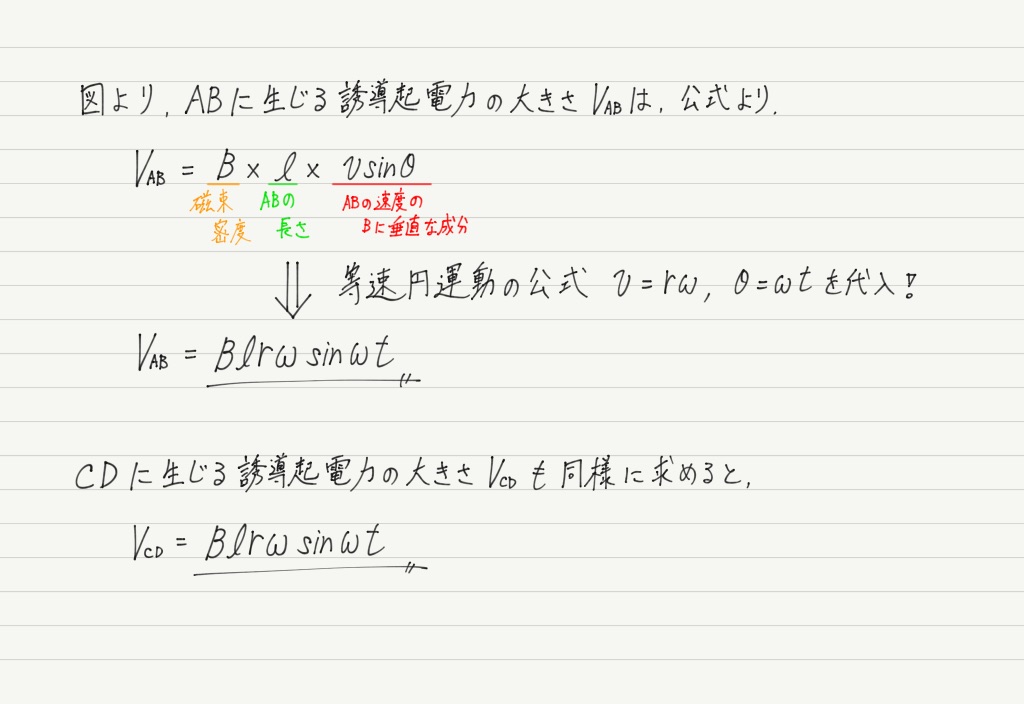 図より, ABに生じる誘導起電力の大きさ VABは, 公式より,
VAB = B × l × v sinθ
磁束 ABの ABの速度の
密度 長さ Bに垂直な成分
⇓ 等速円運動の公式 v=rω, θ=ωtを代入!
VAB = Blrω sin ωt
CDに生じる誘導起電力の大きさ VCD も 同様に求めると,
VCD = Blrω sin ωt